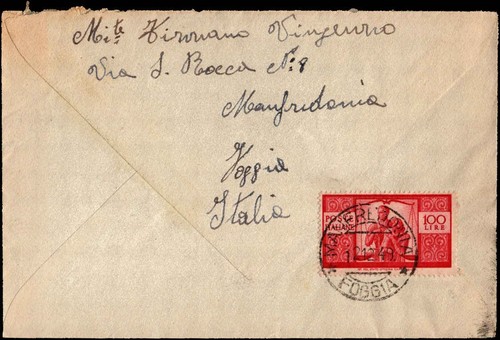 Mit.te Tironano Vingenzo
Via S. Rocca N:8
Manfredonia
Foggia
Italia
POSTE ITALIANE
100 LIRE
MANFREDONIA
FOGGIA